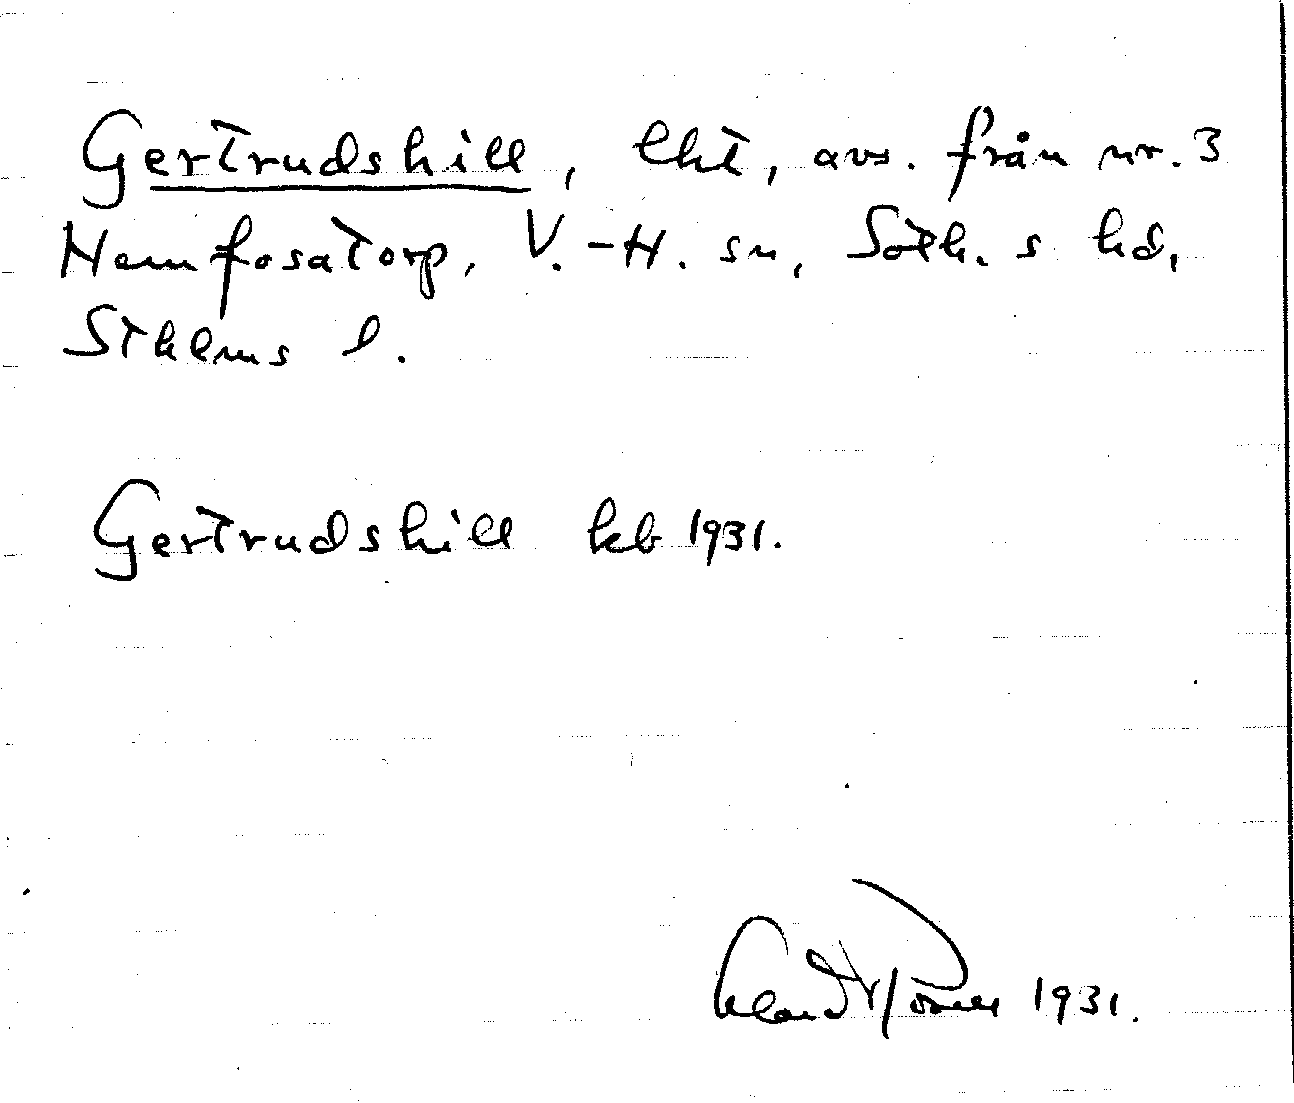 Gertrudshill, lht, avs. från nr. 3
Hemfosatorp, V.-H. sn, Soth. s hd,
Sthlms l.
Gertrudshill kb 1931.
1931.